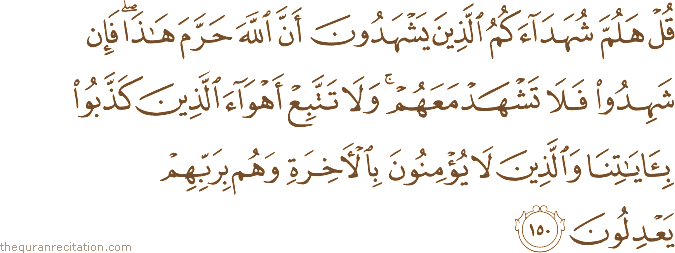 قُلْ هَلُمَّ شُهَدَآءَكُمُ ٱلَّذِينَ يَشْهَدُونَ أَنَّ ٱللَّهَ حَرَّمَ هَـٰذَا ۖ فَإِن
شَهِدُوا۟ فَلَا تَشْهَدْ مَعَهُمْ ۚ وَلَا تَتَّبِعْ أَهْوَآءَ ٱلَّذِينَ كَذَّبُوا۟
بِـَٔايَـٰتِنَا وَٱلَّذِينَ لَا يُؤْمِنُونَ بِٱلْـَٔاخِرَةِ وَهُم بِرَبِّهِمْ
يَعْدِلُونَ ١٥٠
thequranrecitation.com